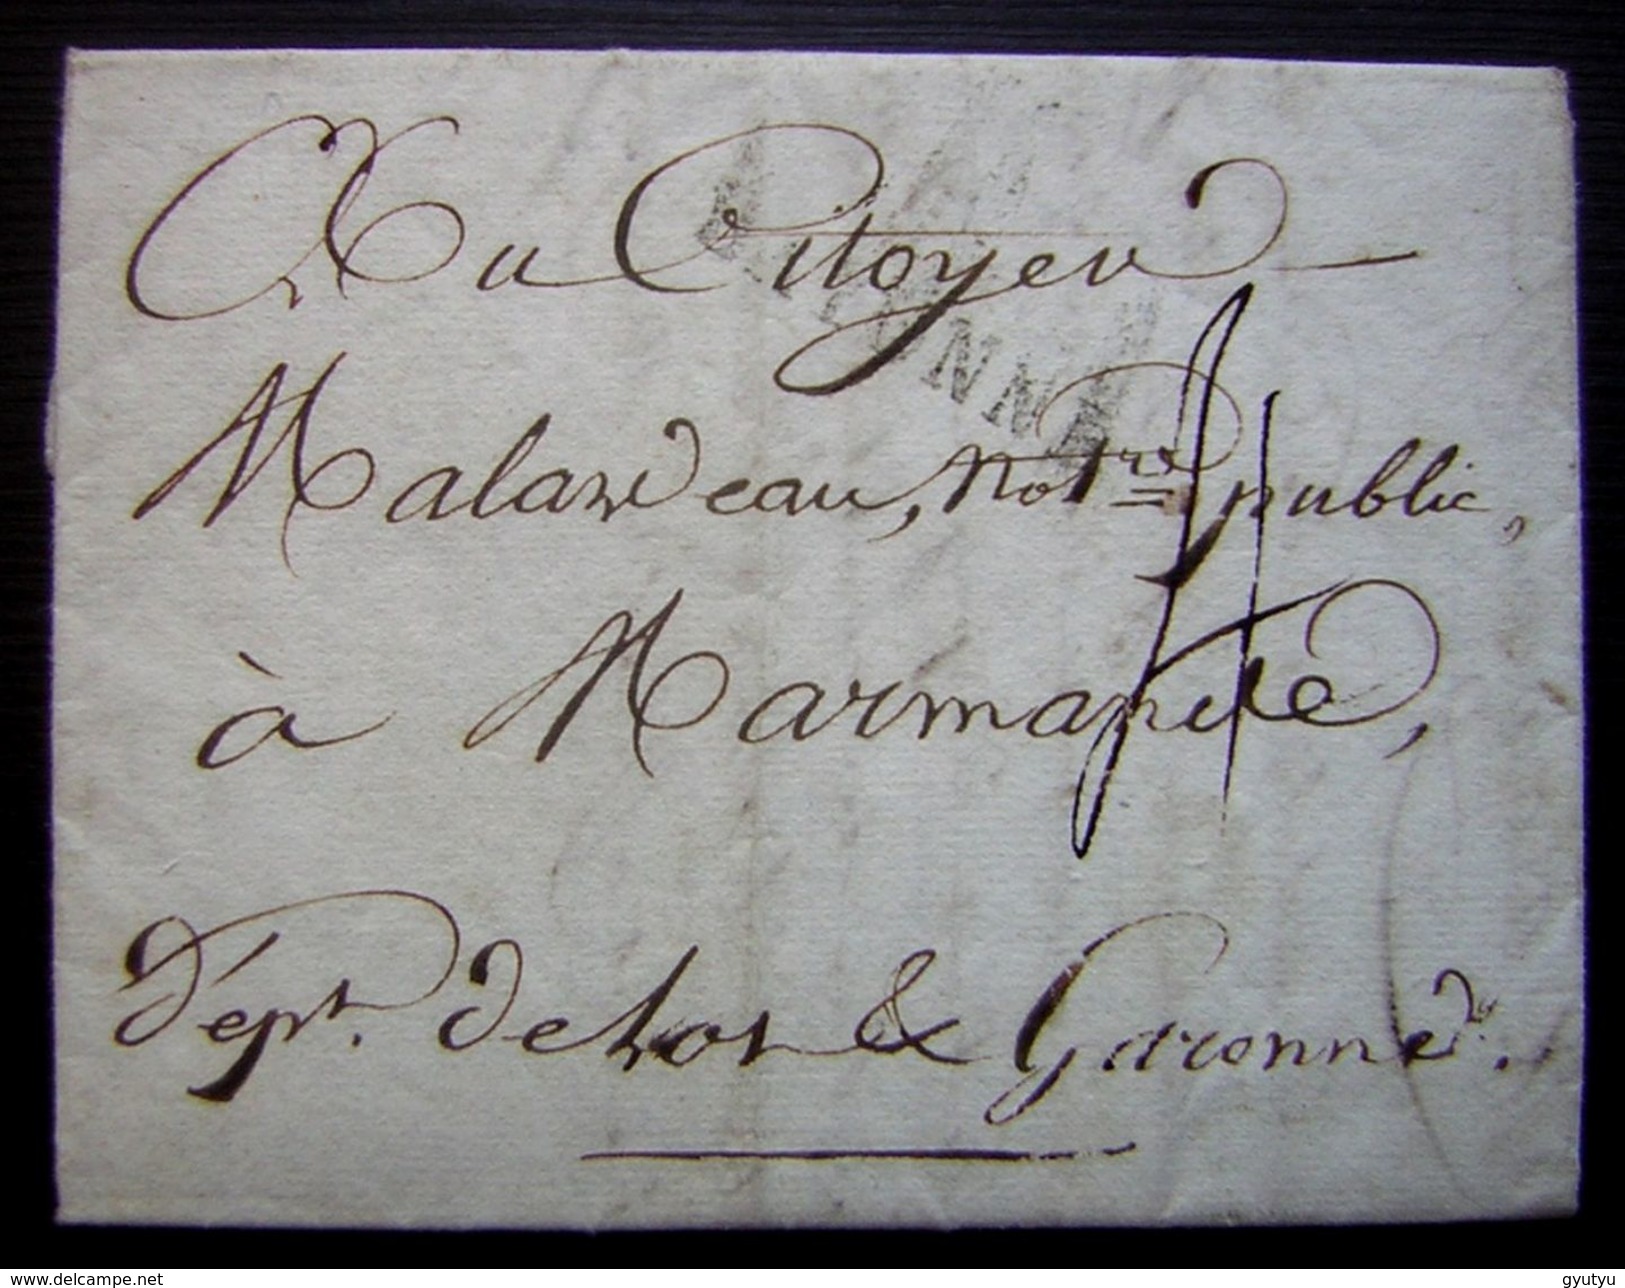 Au Citoyen
Malardeau, Not.re public,
à Marmande,
Dépt. de Lot & Garonne.
4
www.delcampe.net
gyutyu